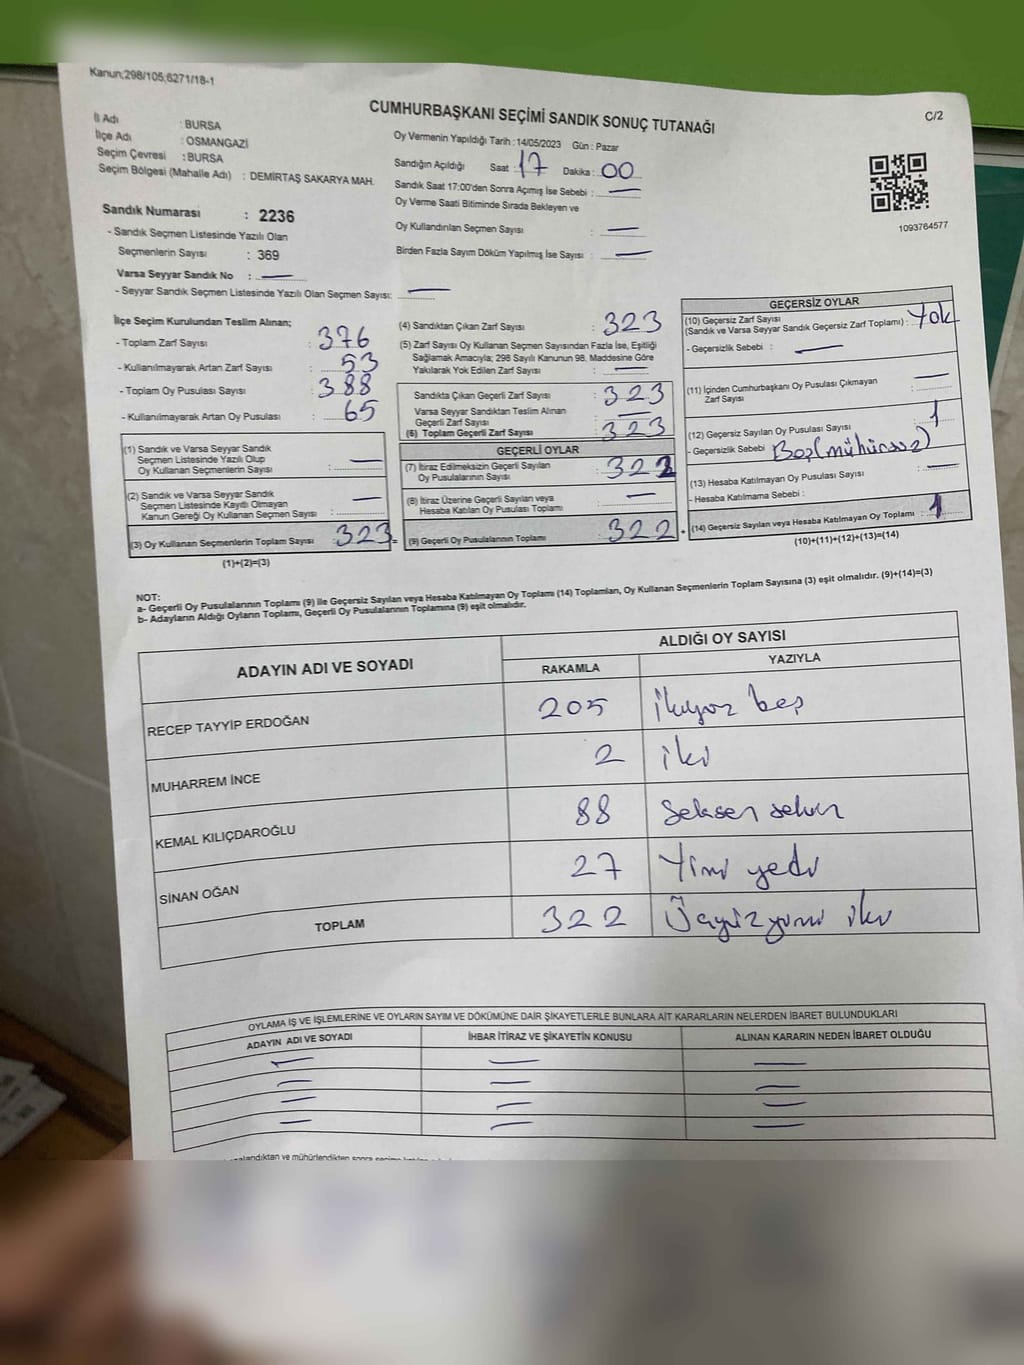 Kanun;298/105;6271/18-1
C/2
CUMHURBAŞKANI SEÇİMİ SANDIK SONUÇ TUTANAĞI
İl Adı : BURSA
İlçe Adı : OSMANGAZİ
Seçim Çevresi : BURSA
Seçim Bölgesi (Mahalle Adı) : DEMİRTAŞ SAKARYA MAH.
Sandık Numarası : 2236
- Sandık Seçmen Listesinde Yazılı Olan
Seçmenlerin Sayısı : 369
Varsa Seyyar Sandık No : —
- Seyyar Sandık Seçmen Listesinde Yazılı Olan Seçmen Sayısı: —
Oy Vermenin Yapıldığı Tarih : 14/05/2023 Gün : Pazar
Sandığın Açıldığı Saat : 17 Dakika : 00
Sandık Saat 17:00'den Sonra Açımış İse Sebebi : —
Oy Verme Saati Bitiminde Sırada Bekleyen ve
Oy Kullandırılan Seçmen Sayısı : —
Birden Fazla Sayım Döküm Yapılmış İse Sayısı : —
1093764577
İlçe Seçim Kurulundan Teslim Alınan;
- Toplam Zarf Sayısı : 376
- Kullanılmayarak Artan Zarf Sayısı : 53
- Toplam Oy Pusulası Sayısı : 388
- Kullanılmayarak Artan Oy Pusulası : 65
(1) Sandık ve Varsa Seyyar Sandık
Seçmen Listesinde Yazılı Olup
Oy Kullanan Seçmenlerin Sayısı : —
(2) Sandık ve Varsa Seyyar Sandık
Seçmen Listesinde Kayıtlı Olmayan
Kanun Gereği Oy Kullanan Seçmen Sayısı : —
(3) Oy Kullanan Seçmenlerin Toplam Sayısı : 323 =
(1)+(2)=(3)
(4) Sandıktan Çıkan Zarf Sayısı : 323
(5) Zarf Sayısı Oy Kullanan Seçmen Sayısından Fazla İse, Eşitliği
Sağlamak Amacıyla; 298 Sayılı Kanunun 98. Maddesine Göre
Yakılarak Yok Edilen Zarf Sayısı : —
Sandıkta Çıkan Geçerli Zarf Sayısı : 323
Varsa Seyyar Sandıktan Teslim Alınan
Geçerli Zarf Sayısı : —
(6) Toplam Geçerli Zarf Sayısı : 323
GEÇERLİ OYLAR
(7) İtiraz Edilmeksizin Geçerli Sayılan
Oy Pusulalarının Sayısı : 322
(8) İtiraz Üzerine Geçerli Sayılan veya
Hesaba Katılan Oy Pusulası Toplamı : —
(9) Geçerli Oy Pusulalarının Toplamı : 322 +
GEÇERSİZ OYLAR
(10) Geçersiz Zarf Sayısı
(Sandık ve Varsa Seyyar Sandık Geçersiz Zarf Toplamı) : Yok
- Geçersizlik Sebebi : —
(11) İçinden Cumhurbaşkanı Oy Pusulası Çıkmayan
Zarf Sayısı : —
(12) Geçersiz Sayılan Oy Pusulası Sayısı : 1
- Geçersizlik Sebebi : Boş(mühürsüz)
(13) Hesaba Katılmayan Oy Pusulası Sayısı : —
- Hesaba Katılmama Sebebi :
(14) Geçersiz Sayılan veya Hesaba Katılmayan Oy Toplamı : 1
(10)+(11)+(12)+(13)=(14)
NOT:
a- Geçerli Oy Pusulalarının Toplamı (9) ile Geçersiz Sayılan veya Hesaba Katılmayan Oy Toplamı (14) Toplamları, Oy Kullanan Seçmenlerin Toplam Sayısına (3) eşit olmalıdır. (9)+(14)=(3)
b- Adayların Aldığı Oyların Toplamı, Geçerli Oy Pusulalarının Toplamına (9) eşit olmalıdır.
ADAYIN ADI VE SOYADI
ALDIĞI OY SAYISI
RAKAMLA YAZIYLA
RECEP TAYYİP ERDOĞAN 205 İkiyüz beş
MUHARREM İNCE 2 iki
KEMAL KILIÇDAROĞLU 88 Seksen sekiz
SİNAN OĞAN 27 Yirmi yedi
TOPLAM 322 Üçyüz yirmi iki
OYLAMA İŞ VE İŞLEMLERİNE VE OYLARIN SAYIM VE DÖKÜMÜNE DAİR ŞİKAYETLERLE BUNLARA AİT KARARLARIN NELERDEN İBARET BULUNDUKLARI
ADAYIN ADI VE SOYADI İHBAR İTİRAZ VE ŞİKAYETİN KONUSU ALINAN KARARIN NEDEN İBARET OLDUĞU
— — —
— — —
— — —
— — —